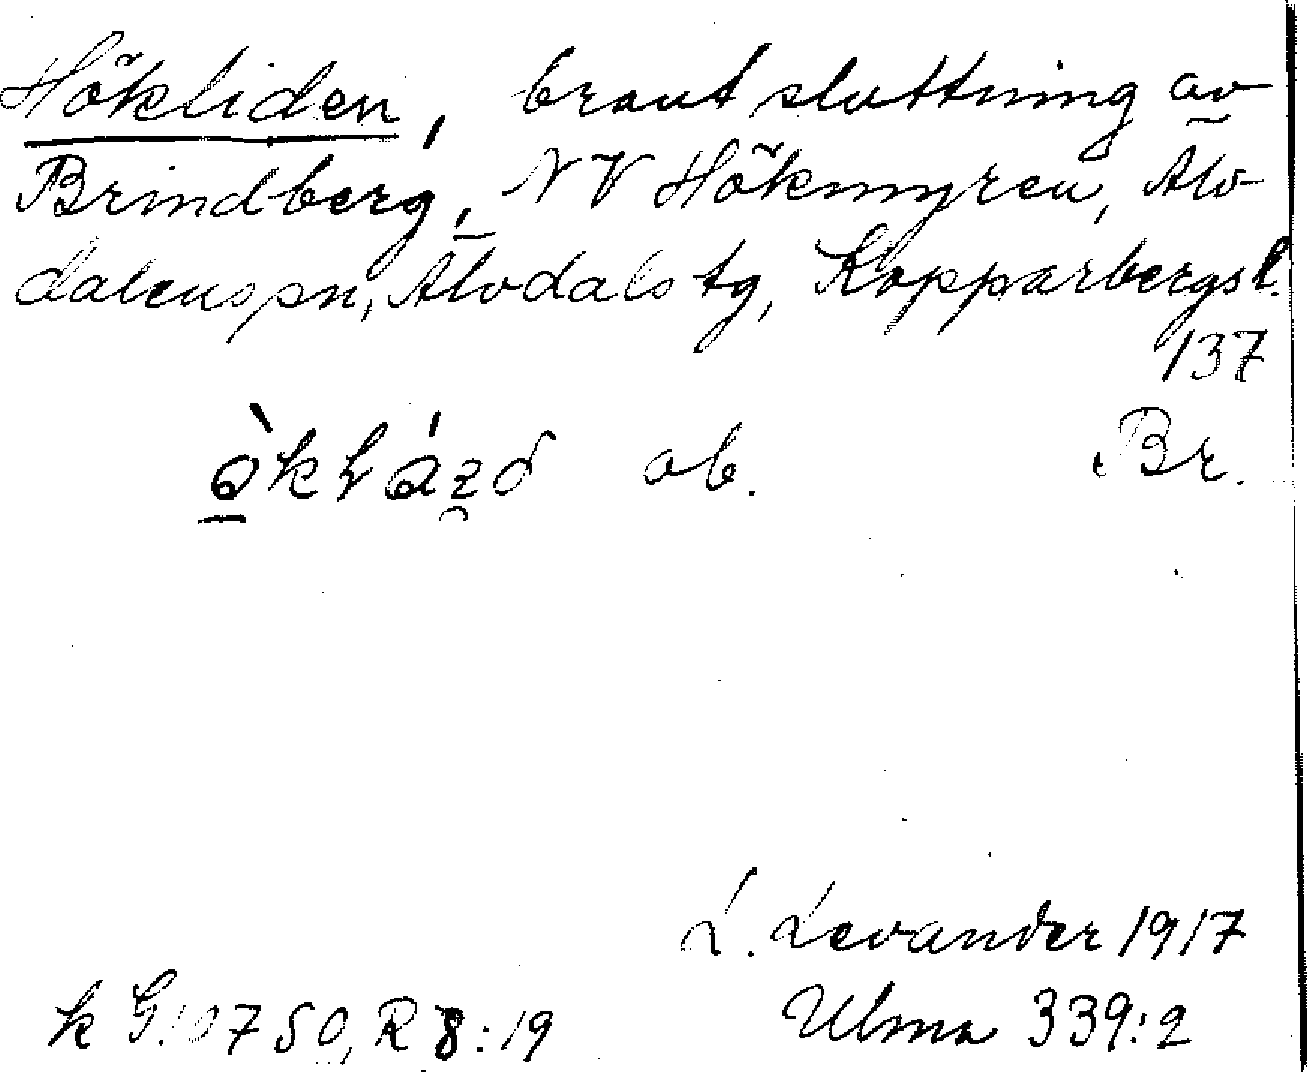 Hökliden, brant sluttning av
Brindberg, NV Hökmyren, Älv-
dalens sn, Älvdals tg, Kopparbergs l.
137
ob. Br.
L. Levander 1917
k G!0750, R 8:19 Ulma 339:2